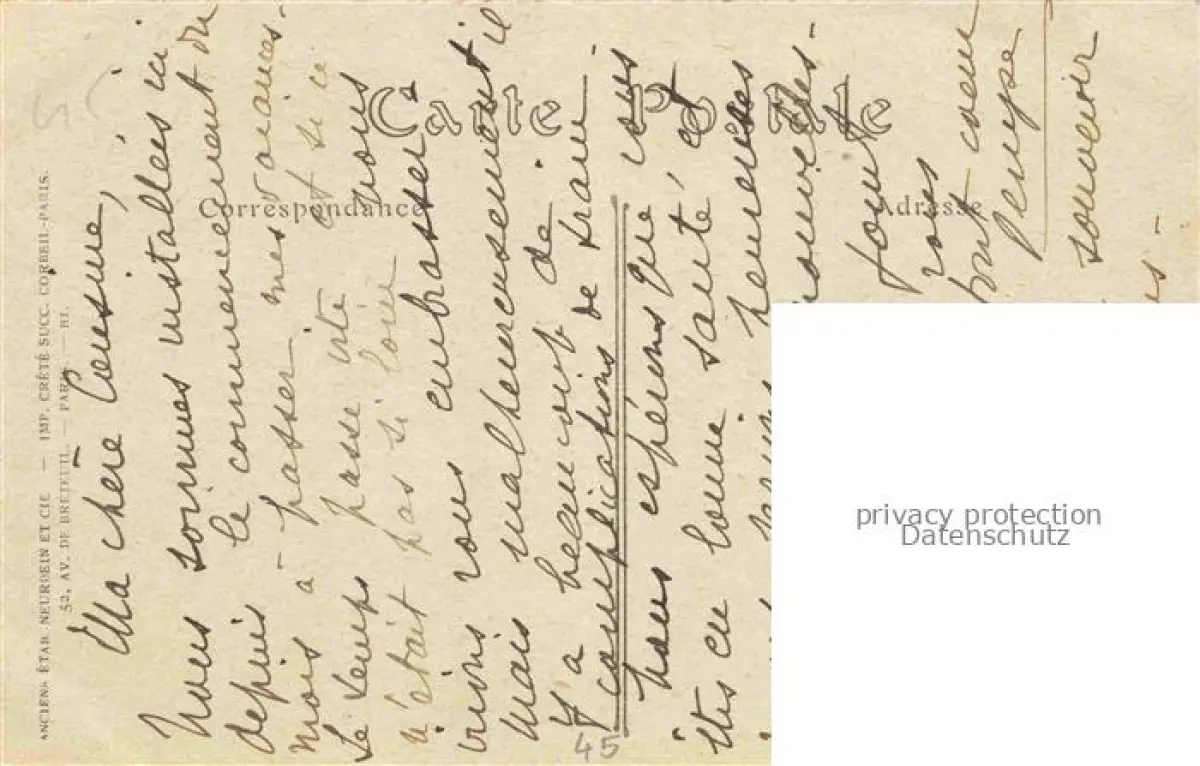 Carte Postale
Correspondance
Adresse
ANCIENS ÉTAB. NEURDEIN ET CIE — IMP. CRÉTÉ SUCC. CORBEIL-PARIS.
52, AV. DE BRETEUIL — PARIS.
Ma chère Cousine,
Nous sommes installées ici
depuis le commencement du
mois à passer mes vacances.
Le temps passe vite et si ce
n'était pas si loin nous
irions vous embrasser
mais malheureusement il
y a beaucoup de
complications de train.
Nous espérons que vous
êtes en bonne santé, et
heureuses
vous
tout coeur
pense
souvenir
45
privacy protection
Datenschutz